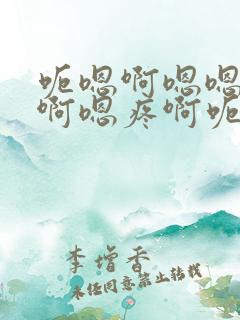 呃嗯啊嗯嗯
啊嗯疼啊呃
李增香
未经同意禁止转载